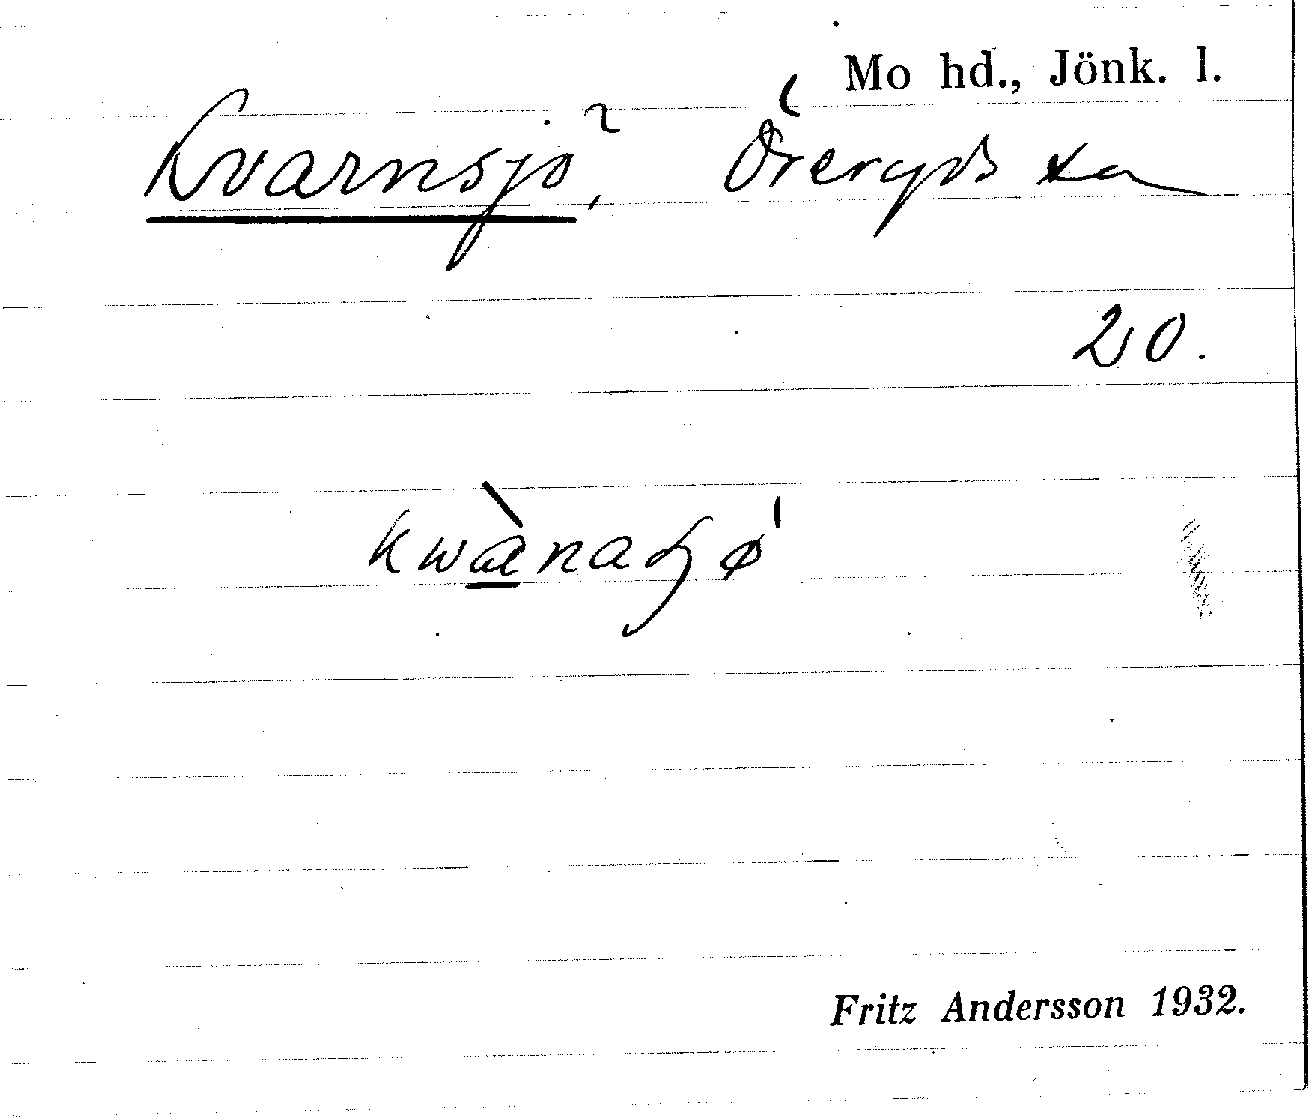 Mo hd., Jönk. l.
Kvarnsjö, Öreryds sn
20.
kwànaʃø
Fritz Andersson 1932.